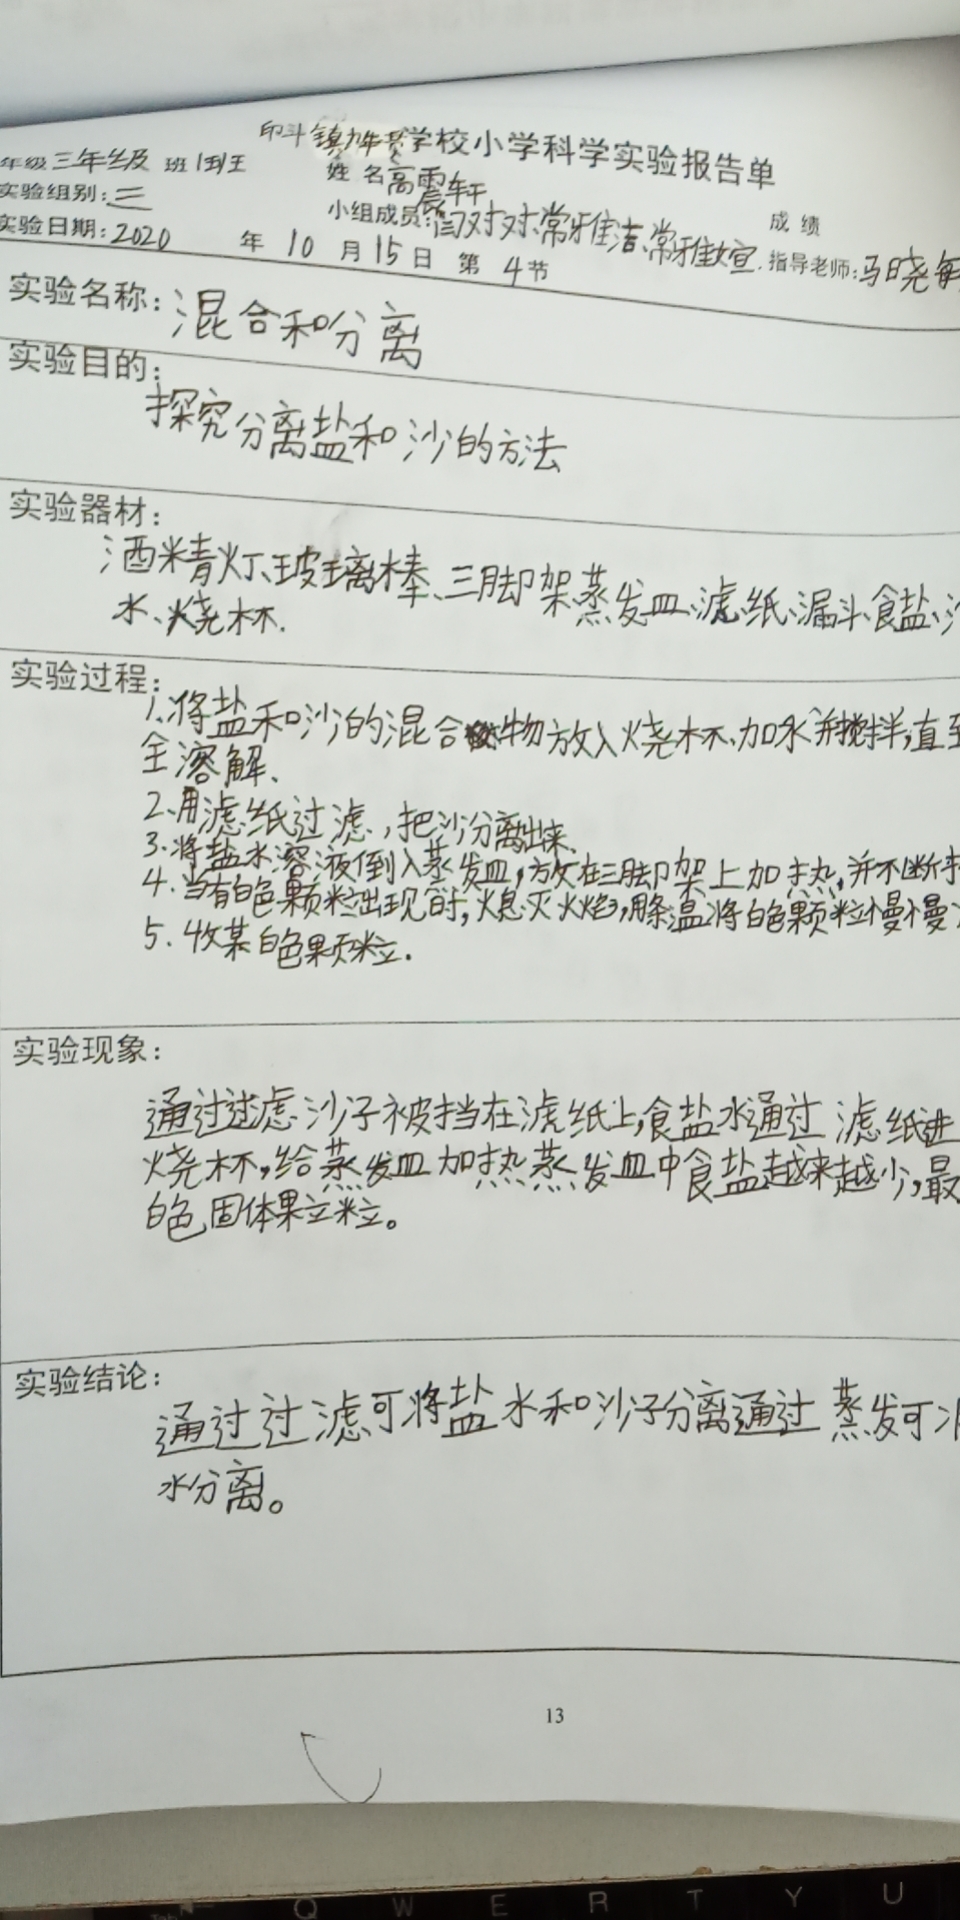 印斗镇 学校小学科学实验报告单
年级 三年级 班 1班
姓名 高震轩
实验组别: 三
小组成员: 闫对对、常雅洁、常雅宣.
成绩
实验日期: 2020 年 10 月 15 日 第 4 节
指导老师: 马晓敏
实验名称: 混合和分离
实验目的:
探究分离盐和沙的方法
实验器材:
酒精灯、玻璃棒、三脚架、蒸发皿、滤纸、漏斗、食盐、
水、烧杯.
实验过程:
1、将盐和沙的混合物放入烧杯、加水并搅拌,直至
全溶解、
2、用滤纸过滤,把沙分离出来、
3.将盐水溶液倒入蒸发皿,放在三脚架上加热,并不断
4.当有白色颗粒出现时,熄灭火焰,用 温将白色颗粒慢慢
5.收 白色颗粒.
实验现象:
通过过滤沙子被挡在滤纸上,食盐水通过滤纸进
烧杯,给蒸发皿加热蒸发皿中食盐越来越少,最
白色固体果立粒。
实验结论:
通过过滤可将盐水和沙子分离通过蒸发可
水分离。
13
Q W E R T Y U